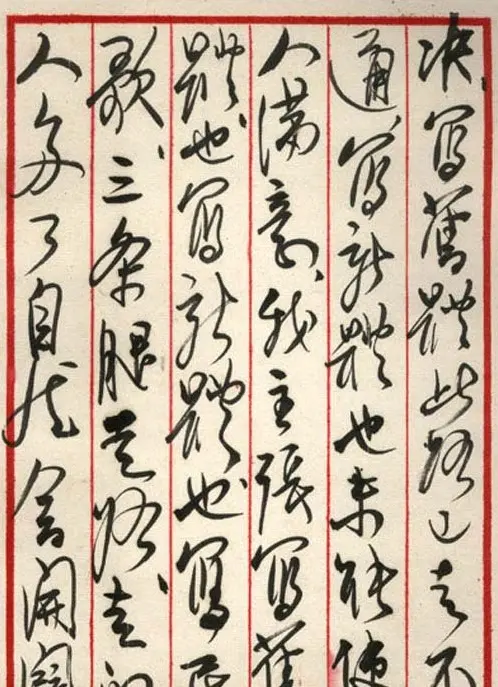 决、寫舊體此路已走不
通、寫新體也未能使
人滿意、我主張寫舊
體、也寫新體、也寫民
歌、三条腿走路、走
人多了自然會開闢